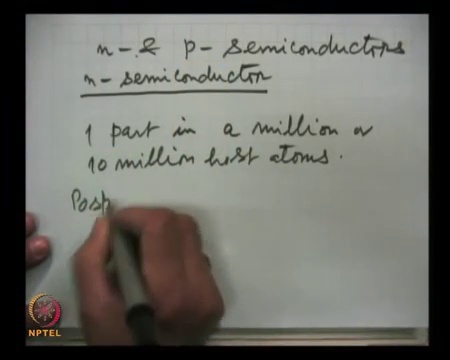 n- & p- semiconductors
n- semiconductor
1 part in a million or
10 million host atoms.
Posp
NPTEL